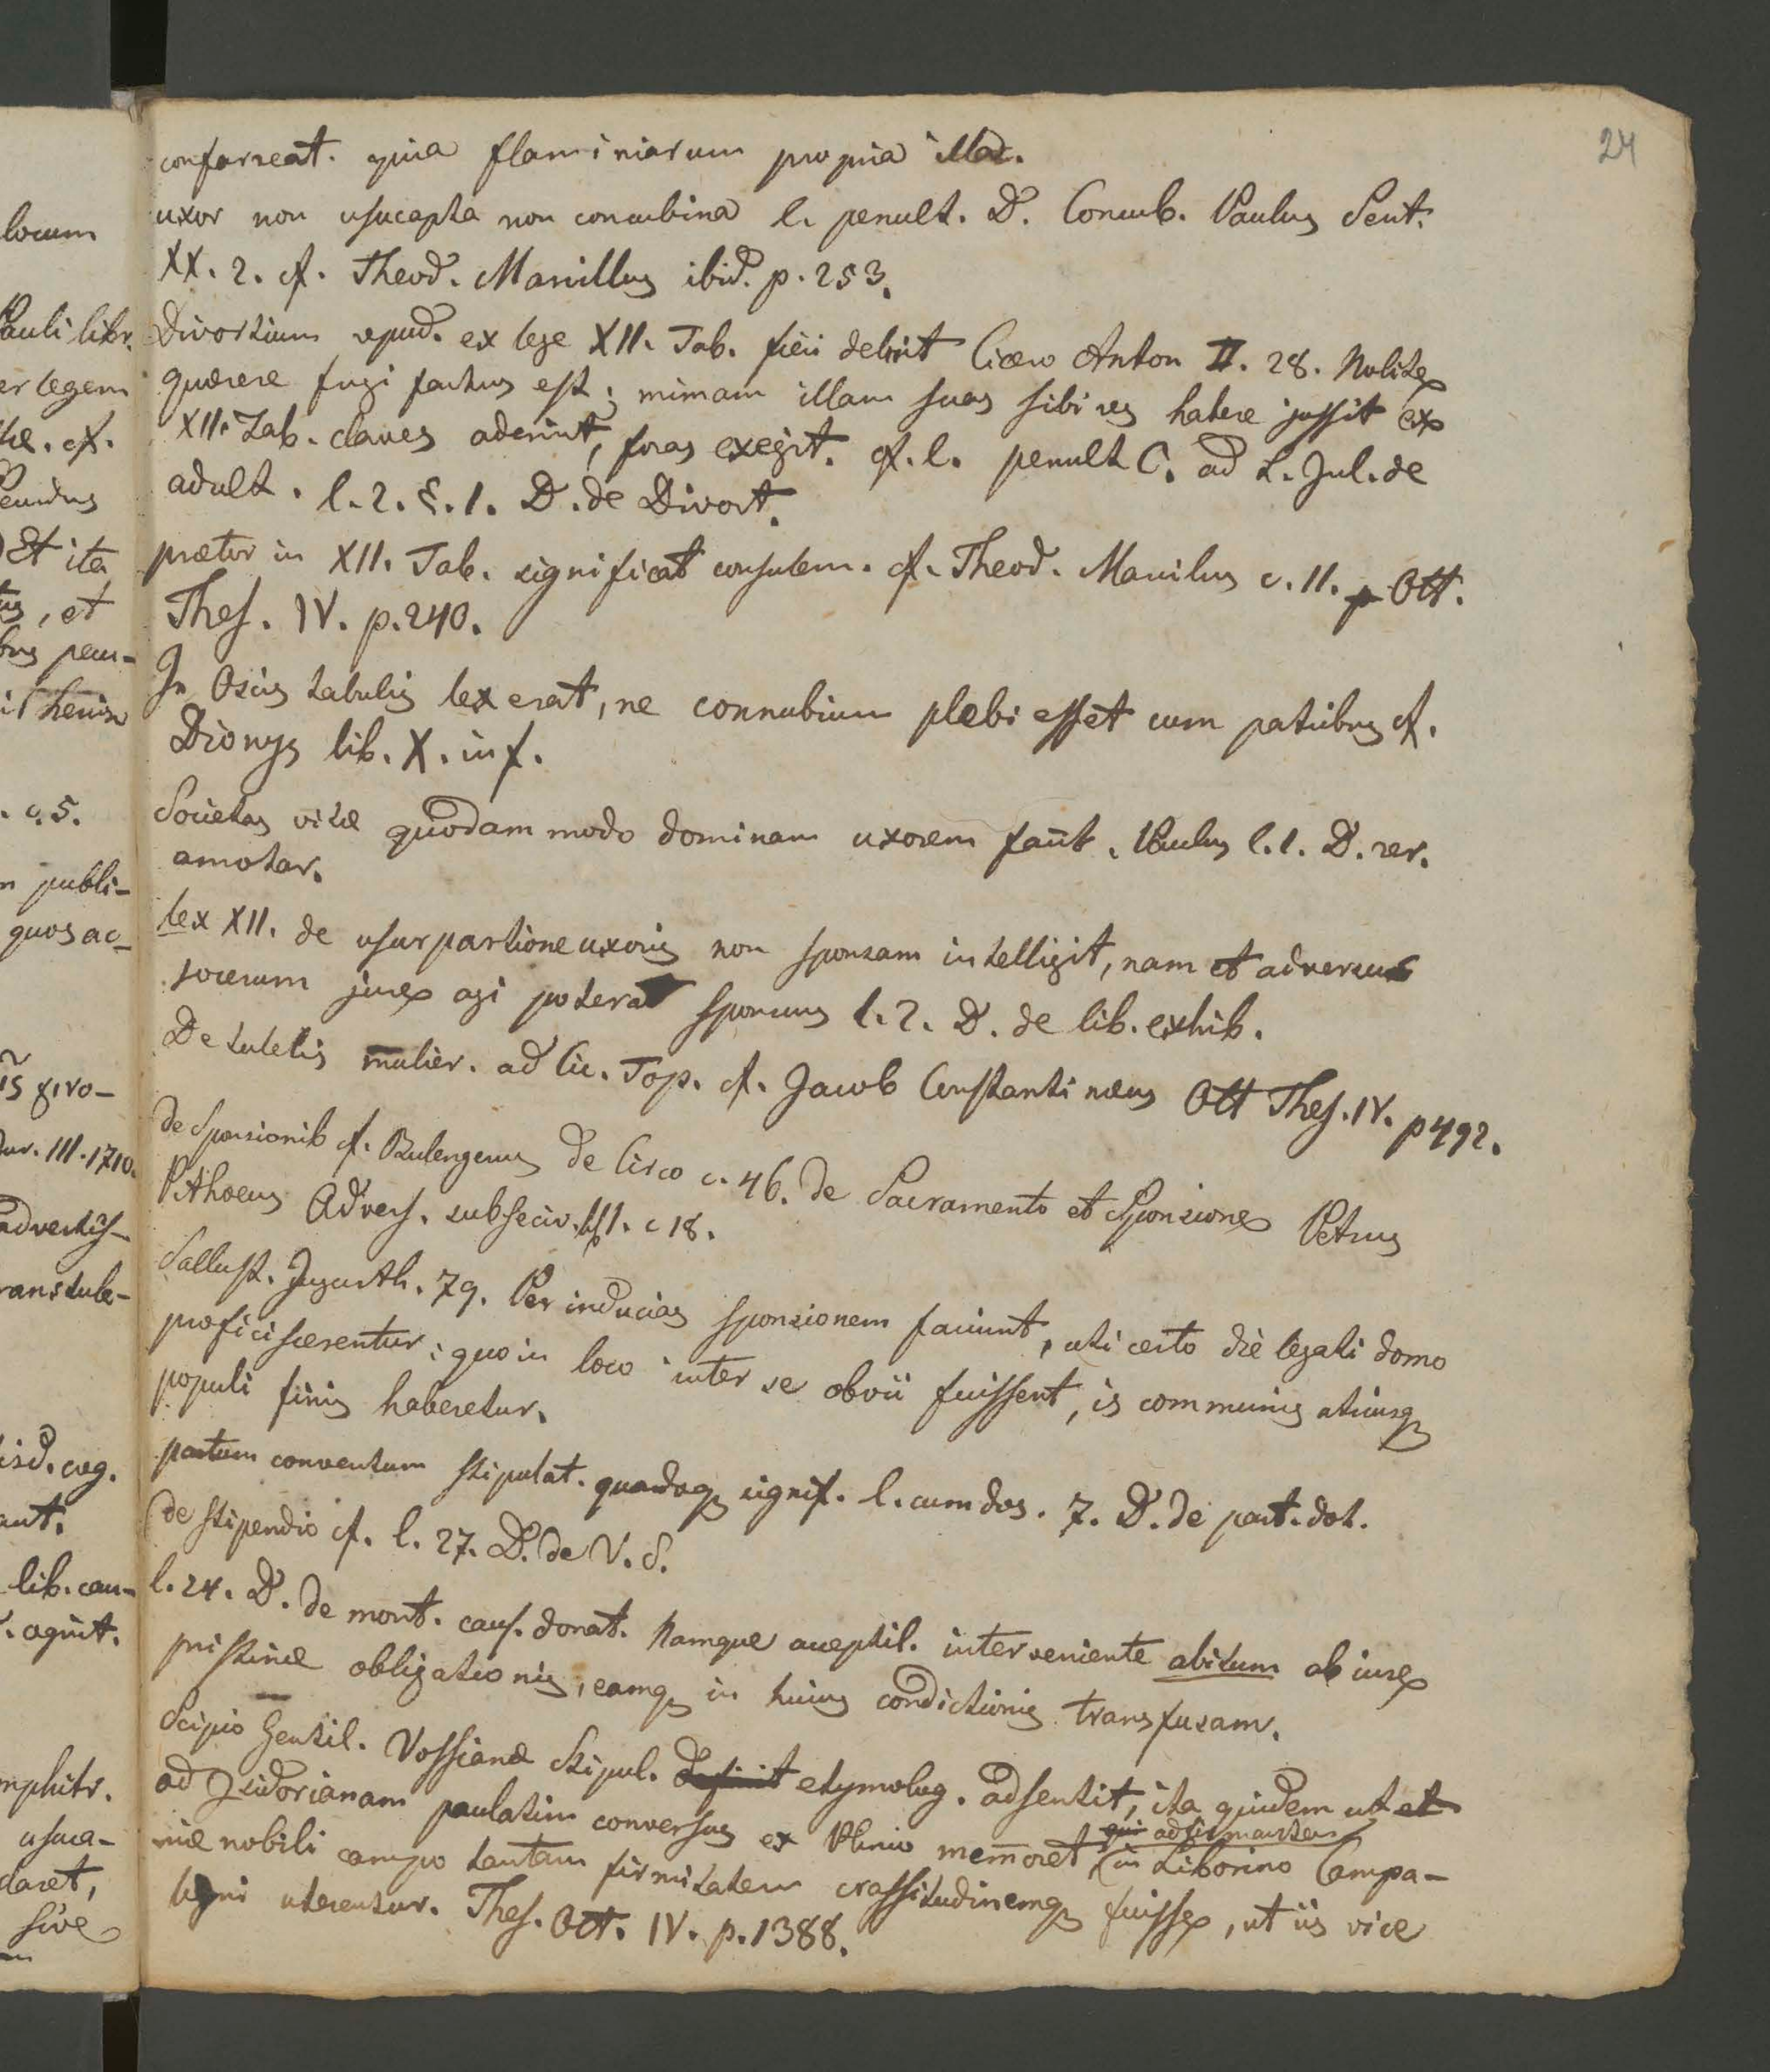 24
confarreat. quia flaminiarum propria illa.
uxor non usucapta non concubina l. penult. D. Concub. Paulus Sent.
XX. 2. cf. Theod. Marcillus ibid. p. 253.
Divortium, repud. ex lege XII. Tab. fieri debuit Cicero Anton II. 28. Nolite
quærere frugi factus est; mimam illam suas sibi res habere jussit ex
XII. Tab. claves ademit, foras exegit. cf. l. penult C. ad L. Jul. de
adult. l. 2. §. 1. D. de Divort.
prætor in XII. Tab. significat consulem. cf. Theod. Marcilius c. 11. p Ott.
Thes. IV. p. 240.
In Osciis tabulis lex erat, ne connubium plebi esset cum patribus cf.
Dionys lib. X. in f.
Societas vitæ quodam modo dominam uxorem facit. Paulus l. 1. D. rer.
amotar.
lex XII. de usurpartione uxoris non sponsam intelligit, nam et adversus
socerum jure agi poterat sponsus l. 2. D. de lib. exhib.
De tutelis mulier. ad Cic. Top. cf. Jacob Constantinæus Ott Thes. IV. p 492.
de Sponsionib cf. Bulengerus de Circo c. 46. de Sacramento et Sponsione Petrus
Pithoeus Advers. subseciv. lib 1. c 18.
Sallust. Jugurth. 79. Per inducias sponsionem faciunt, uti certo die legati domo
proficiscerentur; quo in loco inter se obvii fuissent, is communis utriusq
populi finis haberetur.
pactum conventum stipulat. quandoq signif. l. cum dos. 7. D. de pact. dot.
de stipendio cf. l. 27. D. de V. S.
l. 24. D. de mort. caus. donat. Namque acceptil. interveniente abitum ab iure
pristinæ obligationis, eamq in huius condictionis transfusam.
Scipio Gentil. Vossianæ Stipul. etymolog. adsentit, ita quidem ut et
ad Isidorianam paulatim conversus ex Plinio memoret qui adfirmantem in Liborino Campa-
niæ nobili campo tantam firmitatem crassitudinemq fuisse, ut iis vice
ligni uterentur. Thes. Ott. IV. p. 1388.
locum
Pauli libr.
er legem
cf.
Et ita
, et
pecu-
. c. 5.
publi-
quos ac-
. III. 1710.
cog.
lib. cau-
. aguit.
usuca-
daret,
sive